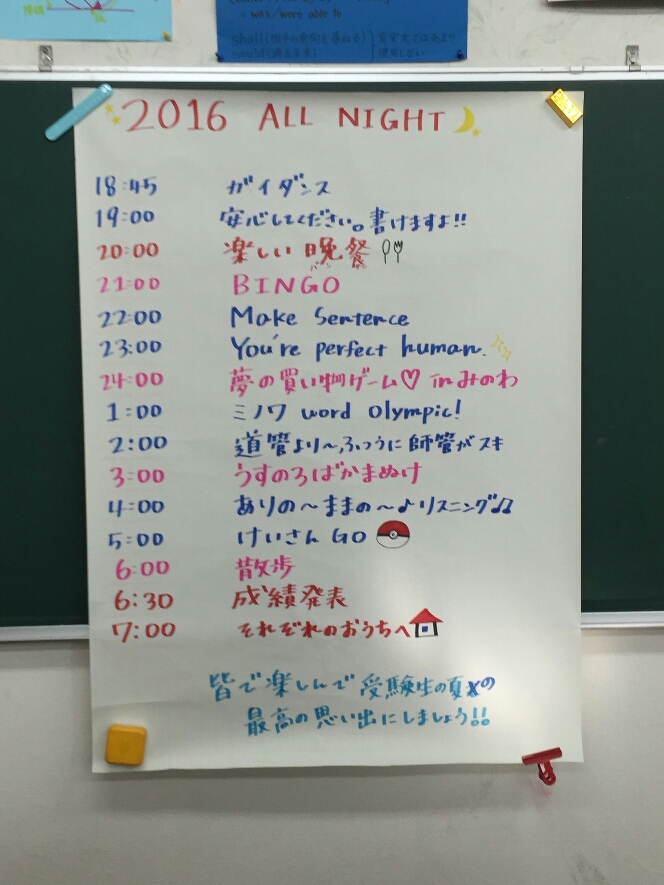 : was/were able to
shall(相手の意向を尋ねる)
would(過去未来)
2016 ALL NIGHT
18:45 ガイダンス
19:00 安心してください。書けますよ!!
20:00 楽しい晩餐
21:00 BINGO
22:00 Make Sentence
23:00 You're perfect human.
24:00 夢の買い物ゲーム♡ inみのわ
1:00 ミノワ word Olympic!
2:00 道管より〜、ふつうに師管がスキ
3:00 うすのろばかまぬけ
4:00 ありの〜ままの〜♪リスニング♫
5:00 けいさん GO
6:00 散歩
6:30 成績発表
7:00 それぞれのおうちへ
皆で楽しんで受験生の夏の
最高の思い出にしましょう!!